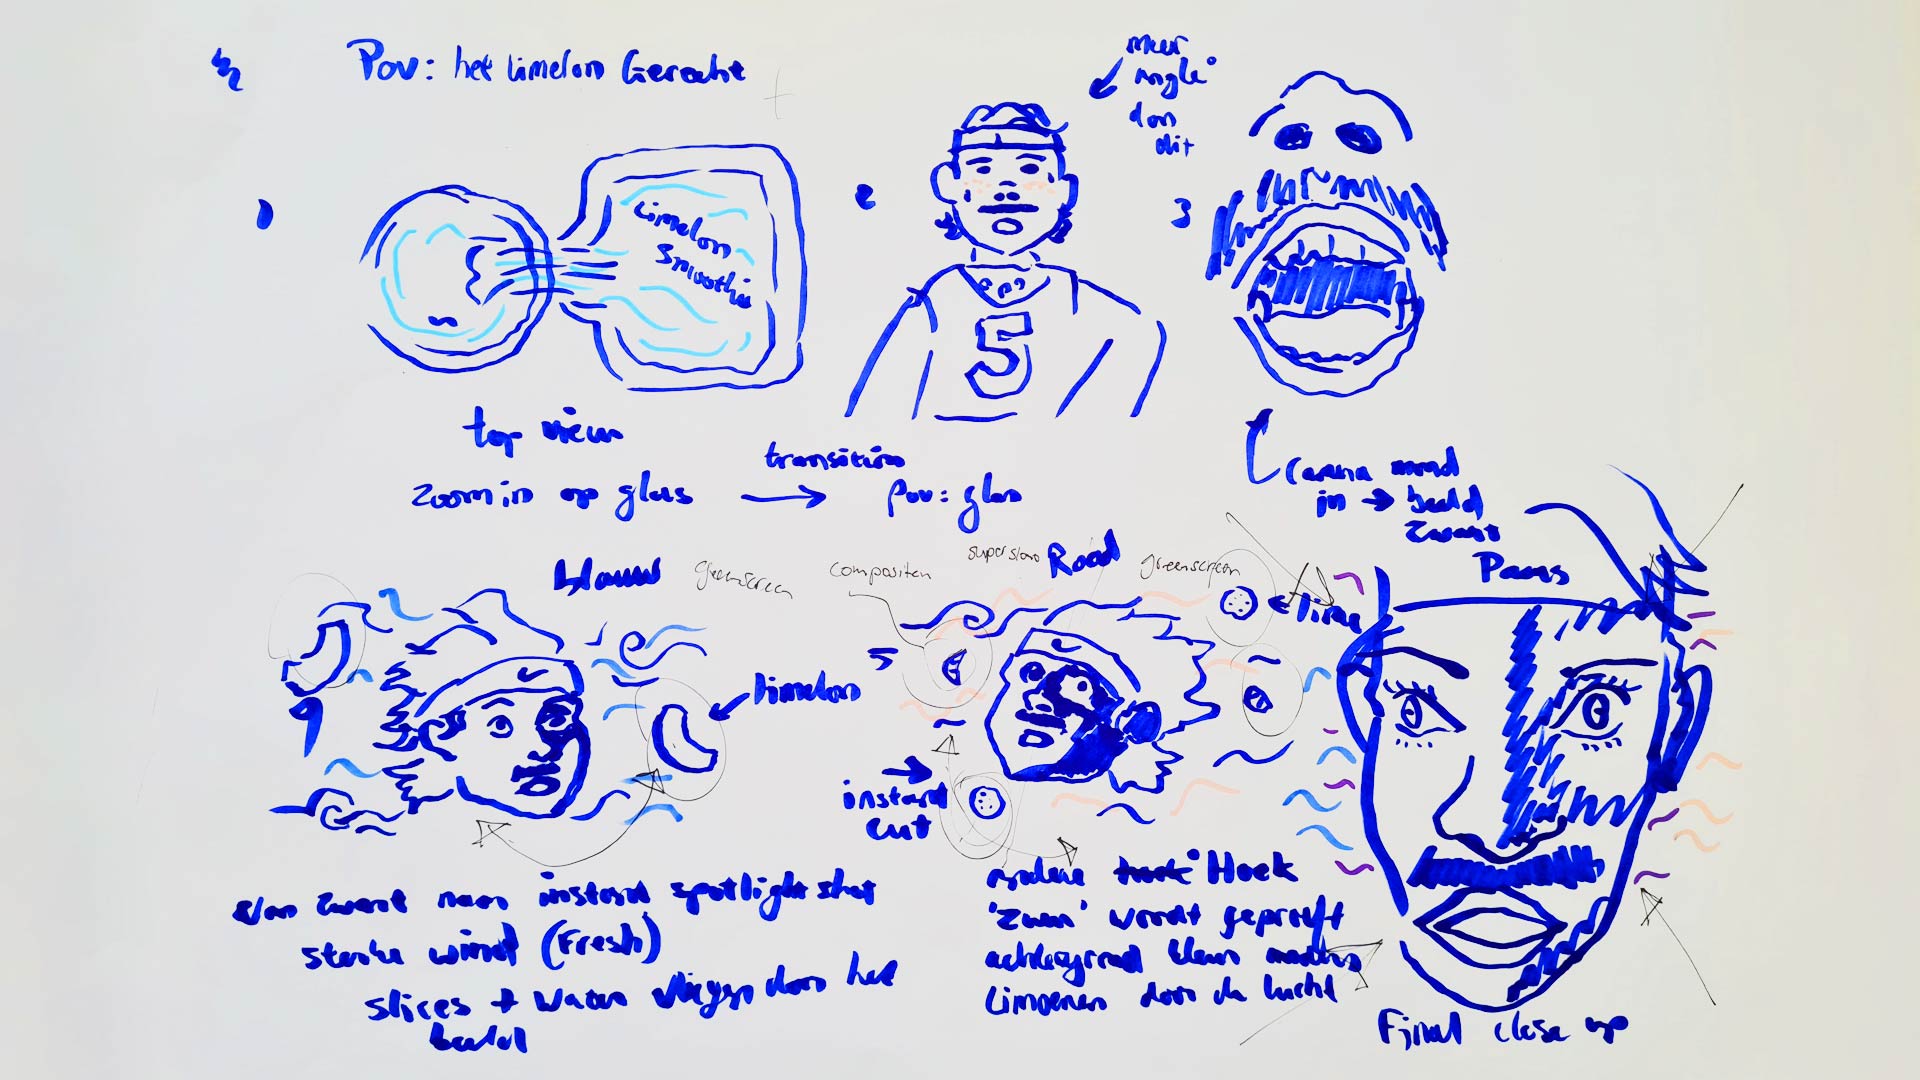 Pov: het Limelon Gerecht
meer
angle
dan
dit
1
2
3
Limelon
Smoothie
5
top view
zoom in op glas
transition
Pov: glas
Camera mond
in → beeld
zwart
blauw
greenscreen
compositen
superslow
Rood
greenscreen
Paars
lime
Limelon
5
instant
cut
Van zwart naar instant spotlight shot
sterke wind (Fresh)
slices + water vliegen door het
beeld
andere Hoek
'zuur' wordt geproeft
achtergrond kleur
Limoenen door de lucht
Final close up